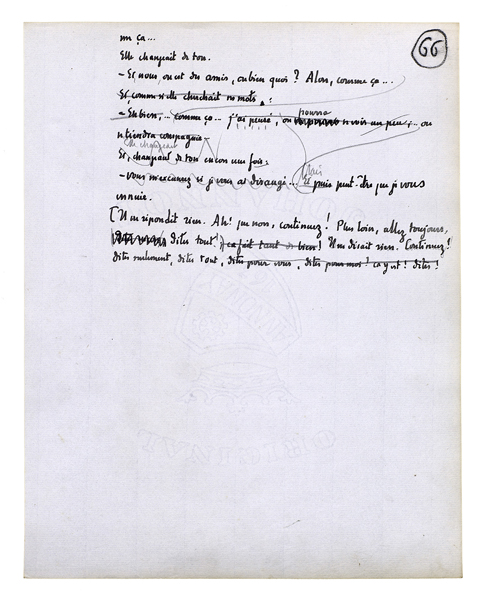 66
un ça...
Elle changeait de ton.
— Et nous, on est des amis, ou bien quoi ? Alors, comme ça...
Et, comme si elle cherchait ses mots :
— Eh bien,... comme ça... j'ai pensé, on pourra se voir un peu,... on
se tiendra compagnie —
Elle changeait
Et, changeant de ton encore une fois :
— vous m'excusez si je vous ai dérangé... Mais je puis peut-être que je vous
ennuie.
[Il ne répondit rien. Ah! que non, continuez! Plus loin, allez toujours,
dites tout! ça fait tant de bien! Il ne disait rien. Continuez!
dites seulement, dites tout, dites pour vous, dites pour moi! ça y est! dites!
ORIGINAL